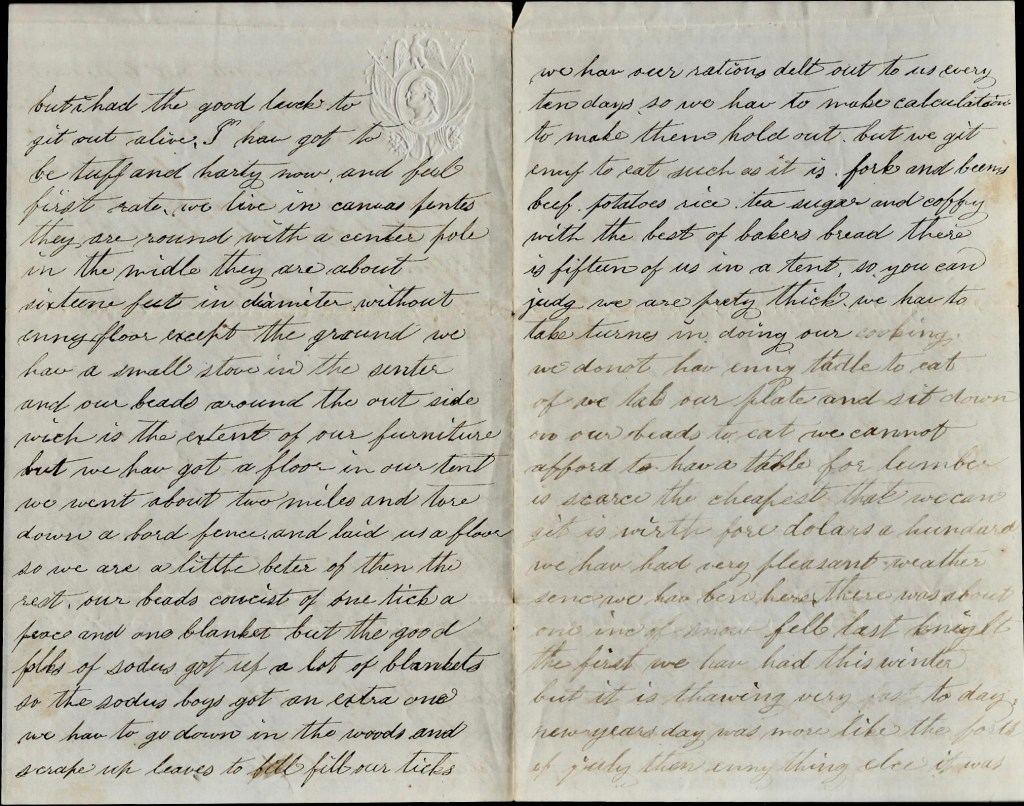 but i had the good luck to
git out alive. I hav got to
be tuff and harty now, and feel
first rate, we live in canvas tentes
they are round with a center pole
in the midle they are about
sixteene feet in diameter without
enny floor except the ground we
hav a small stove in the senter
and our beads around the out side
wich is the extent of our furniture
but we hav got a floor in our tent
we went about two miles and tore
down a bord fence. and laid us a floor
so we are a little beter of then the
rest. our beads concist of one tick a
peace and one blanket but the good
folks of sodus got up a lot of blankets
so the sodus boys got an extra one
we hav to go down in the woods and
scrape up leaves to fill our ticks
we hav oeer rations delt out to us every
ten days so we hav to make calculation
to make them hold out. but we git
enuf to eat such as it is. pork and beens
beef. potatoes rice. tea sugar and coffy
with the best of bakers bread there
is fifteen of us in a tent, so you can
judg we are prety thick. we hav to
take turnes in doing our cooking.
we donot hav enny table to eat
of we tak our plate and sit down
on our beads to eat we cannot
afford to hav a table for lumber
is scarce the cheapest that we can
git is wirth fore dolars a hundard
we hav had very pleasant weather
senc we hav ben here, there was about
one inc of snow fell last knight
the first we hav had this winter
but it is thawing very fast to day,
new years day was more like the forth
of july then enny thing else it was